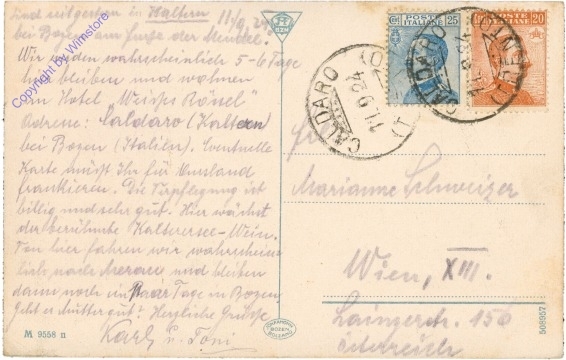 sind seit gestern in Kaltern 11/9.24
bei Bozen am Fusse der Mendel.
Wir werden wahrscheinlich 5-6 Tage
hier bleiben und wohnen
im Hotel "Weisses Rössel"
Adresse: Caldaro (Kaltern)
bei Bozen (Italien). Eventuelle
Karte müßt Ihr für Ausland
frankieren. Die Verpflegung ist
billig und sehr gut. Hier wächst
der berühmte Kalterersee-Wein.
Von hier fahren wir wahrschein-
lich nach Meran und bleiben
dann noch ein paar Tage in Bozen
Geht es Mutter gut? Herzliche Grüße
Karl u. Toni
M 9558 n
Copyright by Wimstore
POSTE ITALIANE
CENT 25
POSTE ITALIANE
CENT 20
CALDARO
11.9.24
CALDARO (TRENTO)
Marianne Schweizer
Wien, XIII.
Lainzerstr. 156
Österreich
508957